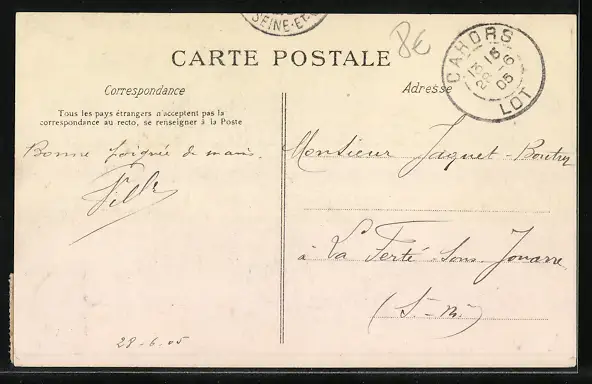 SEINE-ET-
CARTE POSTALE
8€
CAHORS
15
23 6
05
LOT
Correspondance
Adresse
Tous les pays étrangers n'acceptent pas la
correspondance au recto, se renseigner à la Poste
Bonne poignée de main.
Monsieur Jaquet-Boutry
à La Ferté sous Jouarre
(S-M)
29-6-05